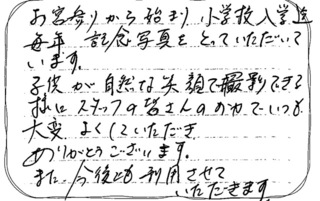 お宮参りから始まり 小学校入学迄
毎年 記念写真をとっていただいて
います。
子供が自然な笑顔で撮影できる
様に スタッフの皆さんのおかげでいつも
大変 よくしていただき
ありがとうございます。
また 今後とも 利用させて
いただきます。